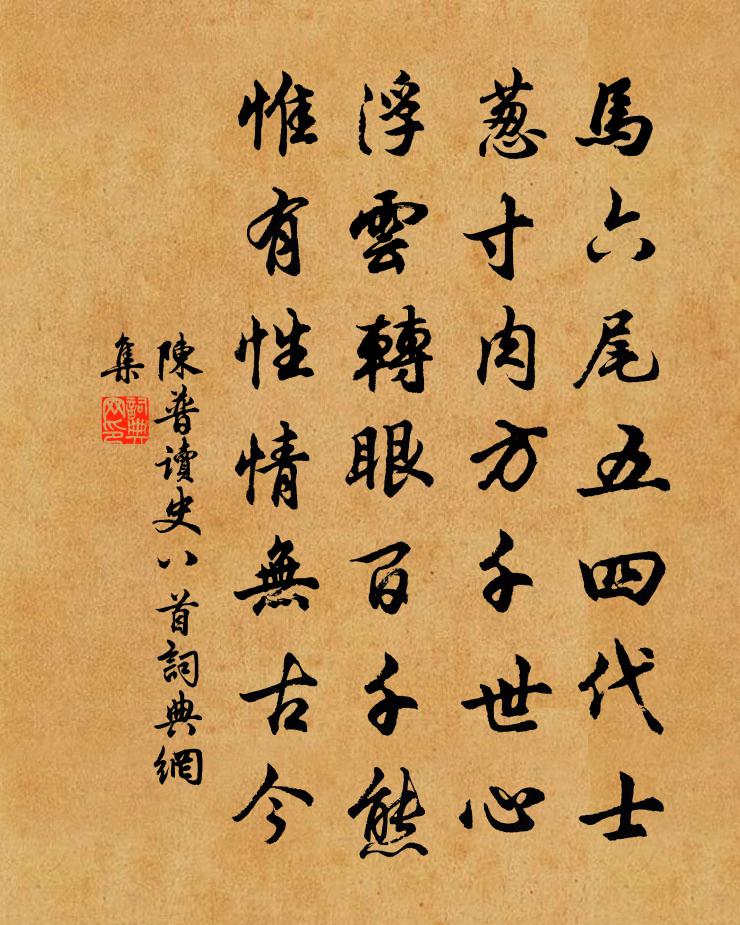 馬六尾五四代士
葱寸肉方千世心
浮雲轉眼百千態
惟有性情無古今
陳普讀史八首詞典網
集
詞典
网印